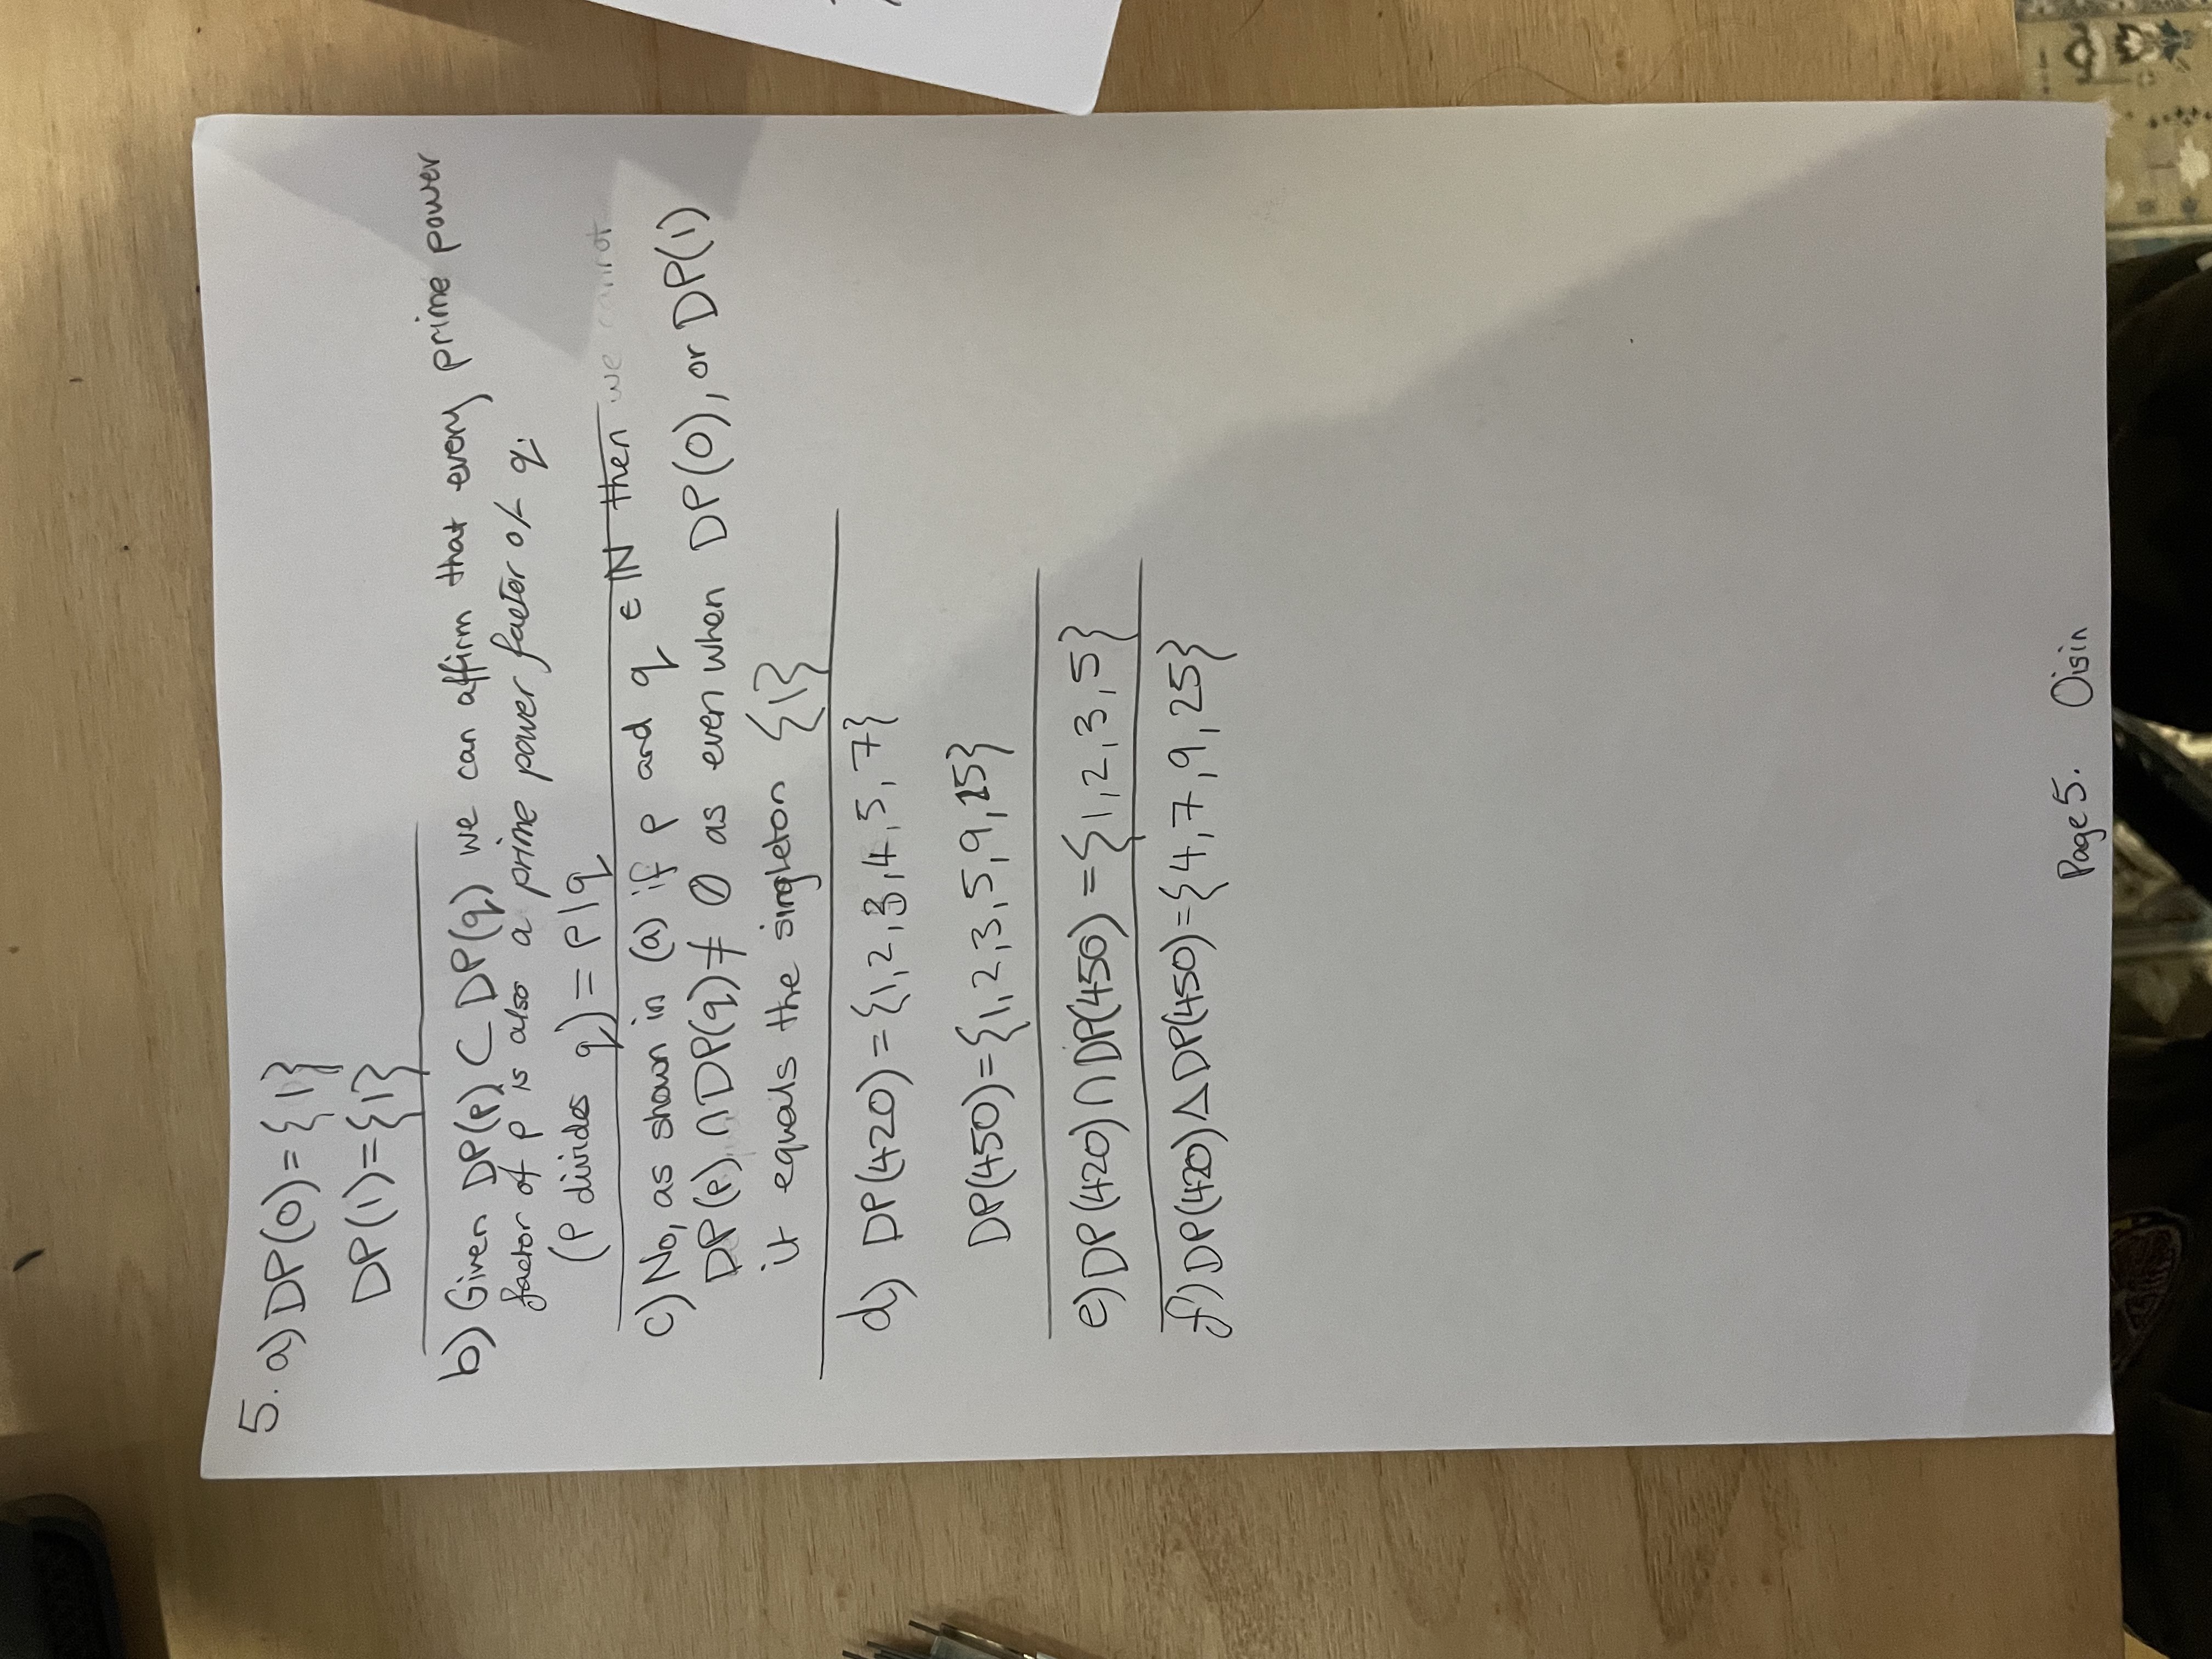 5. a) DP(0) = {1}
DP(1) = {1}
b) Given DP(p) ⊂ DP(q) we can affirm that every prime power
factor of p is also a prime power factor of q.
(p divides q) = p|q
c) No, as shown in (a) if p and q ∈ ℕ then we cannot
DP(p) ∩ DP(q) ≠ ∅ as even when DP(0), or DP(1)
it equals the singleton {1}
d) DP(420) = {1,2,3,4,5,7}
DP(450) = {1,2,3,5,9,25}
e) DP(420) ∩ DP(450) = {1,2,3,5}
f) DP(420) Δ DP(450) = {4,7,9,25}
Page 5. Oisin